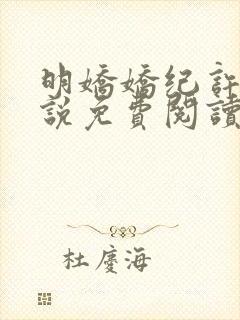 明嬌嬌纪許
說免費閱讀
杜慶海